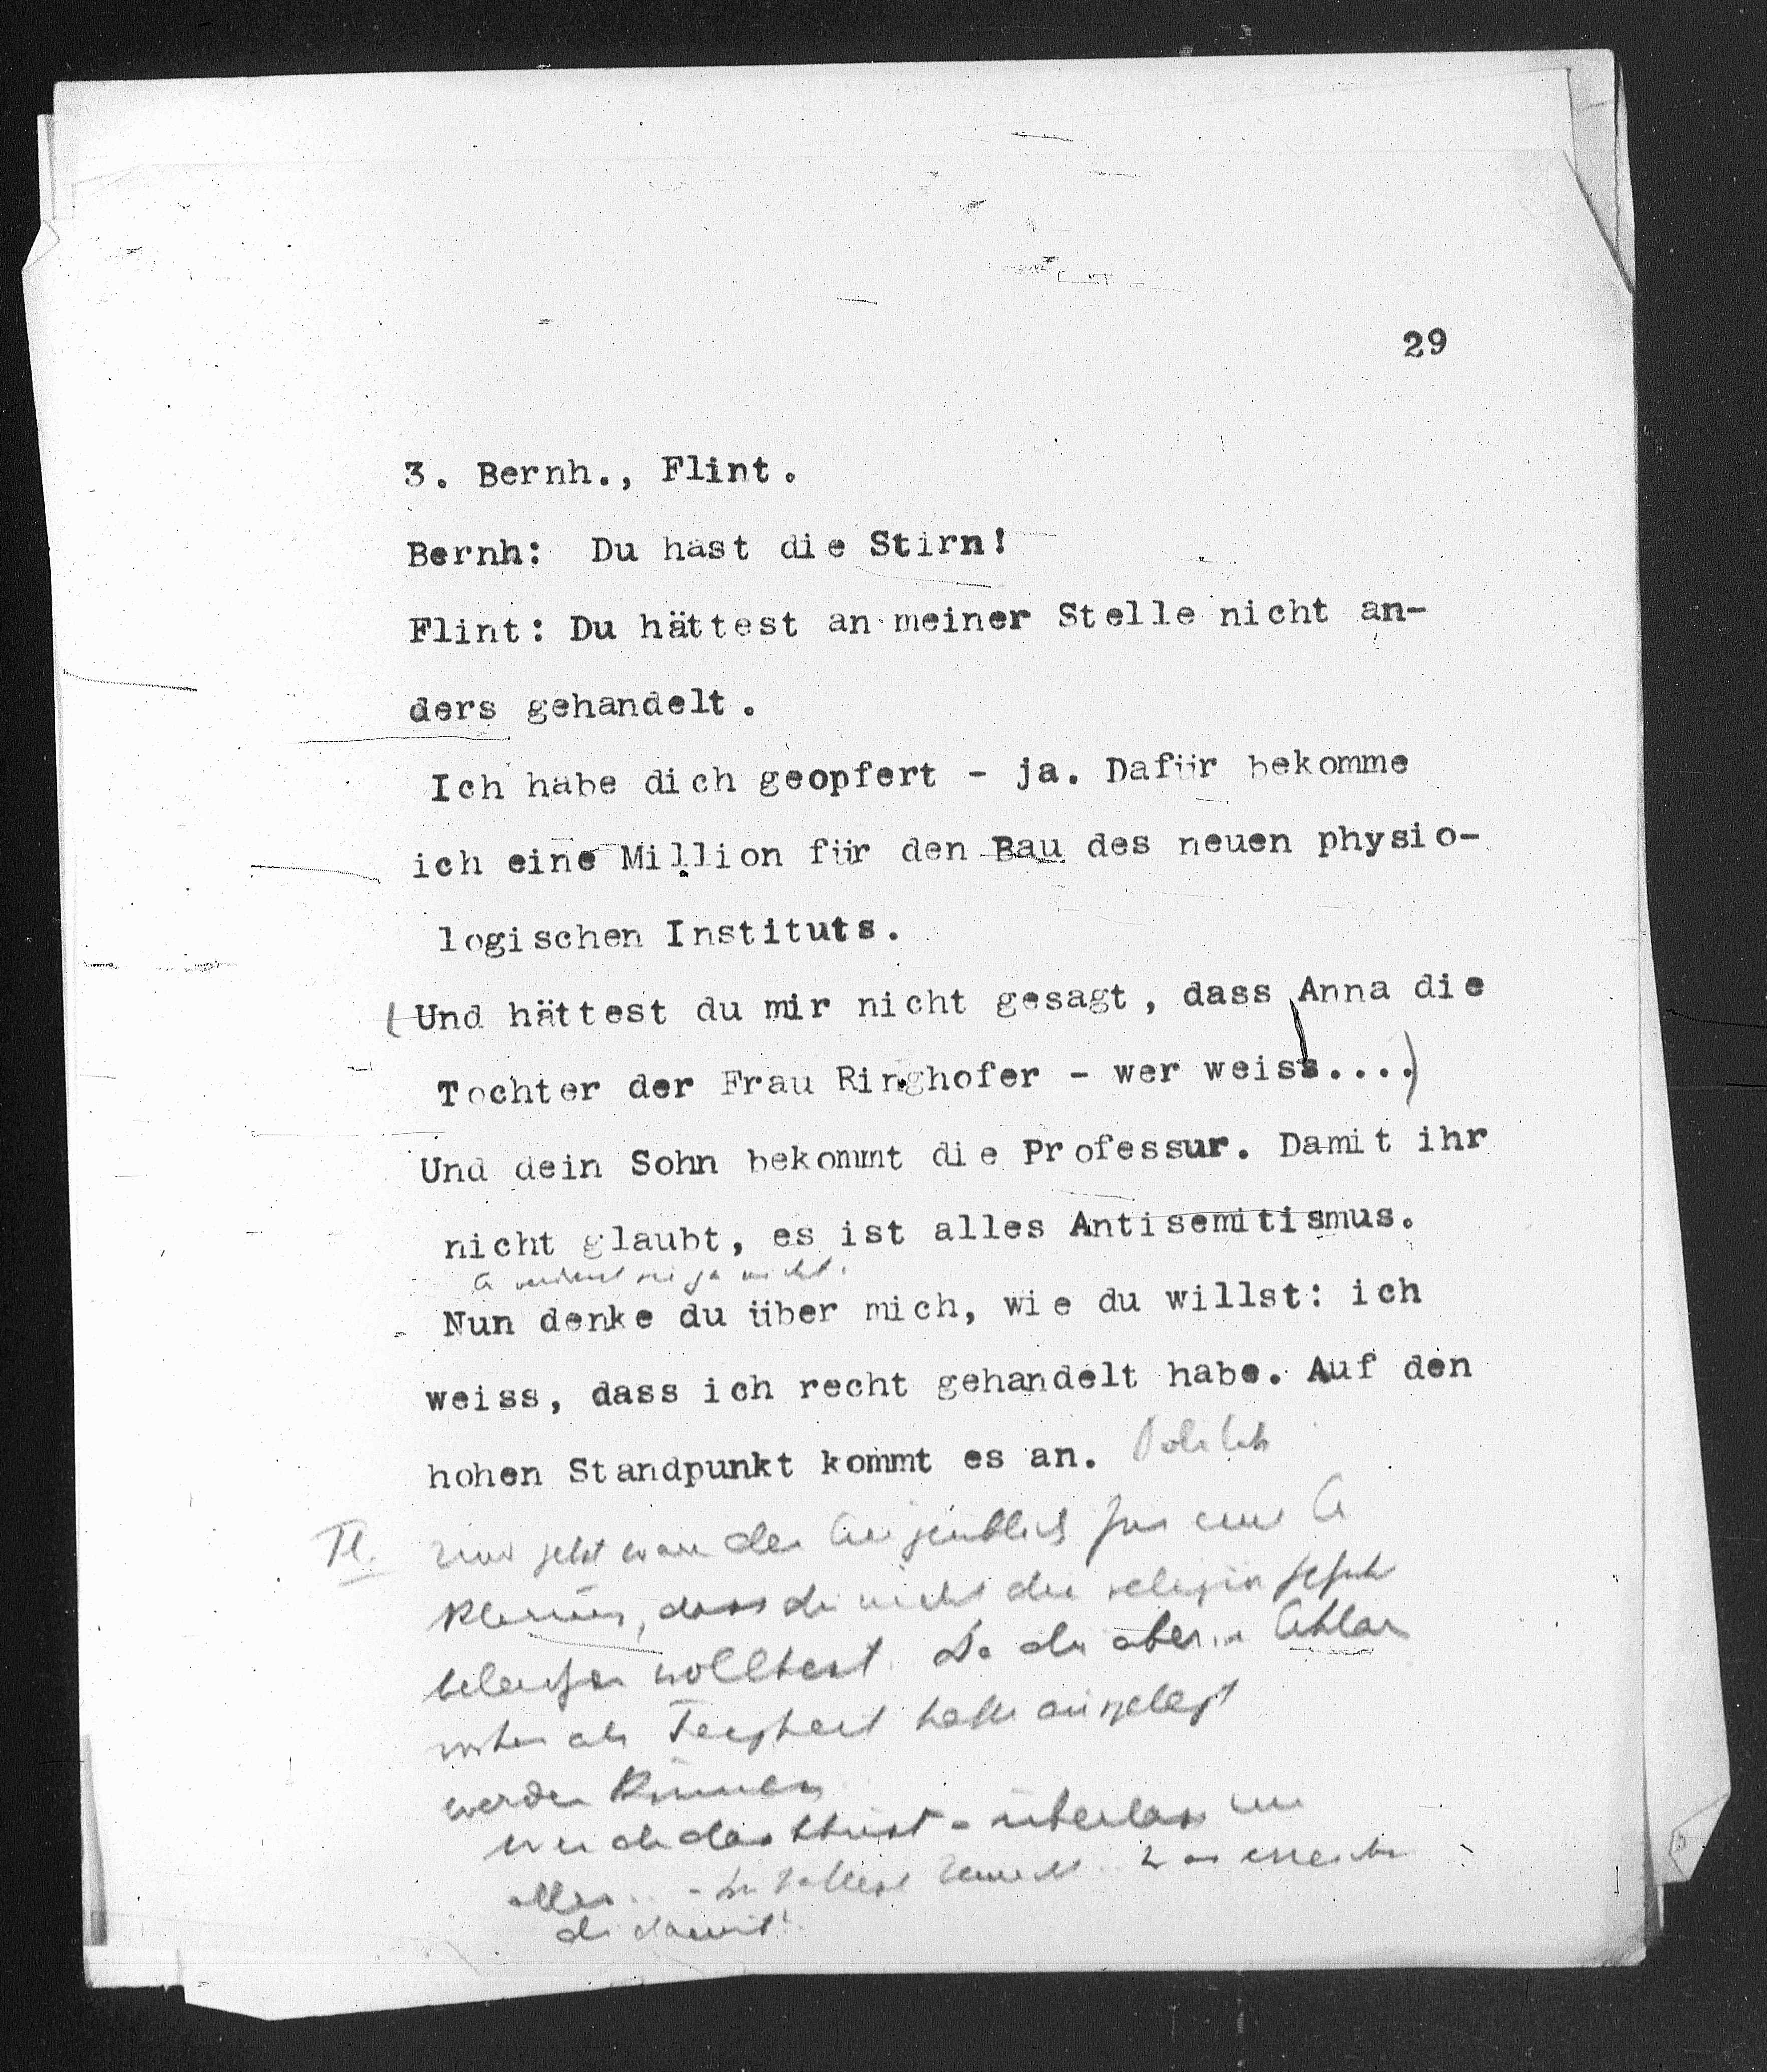 29
3. Bernh., Flint.
Bernh: Du hast die Stirn!
Flint: Du hättest an meiner Stelle nicht an-
ders gehandelt.
Ich habe dich geopfert - ja. Dafür bekomme
ich eine Million für den Bau des neuen physio-
logischen Instituts.
(Und hättest du mir nicht gesagt, dass Anna die
Tochter der Frau Ringhofer - wer weiss....)
Und dein Sohn bekommt die Professur. Damit ihr
nicht glaubt, es ist alles Antisemitismus.
ja nicht.
Nun denke du über mich, wie du willst: ich
weiss, dass ich recht gehandelt habe. Auf den
hohen Standpunkt kommt es an. Politik
Fl. Und jetzt wäre der Augenblick für eine
dass du nicht die
wolltest. Da du aber
als Feigheit hätte ausgelegt
werden können
du das thust - überlass mir
alles..
du damit!